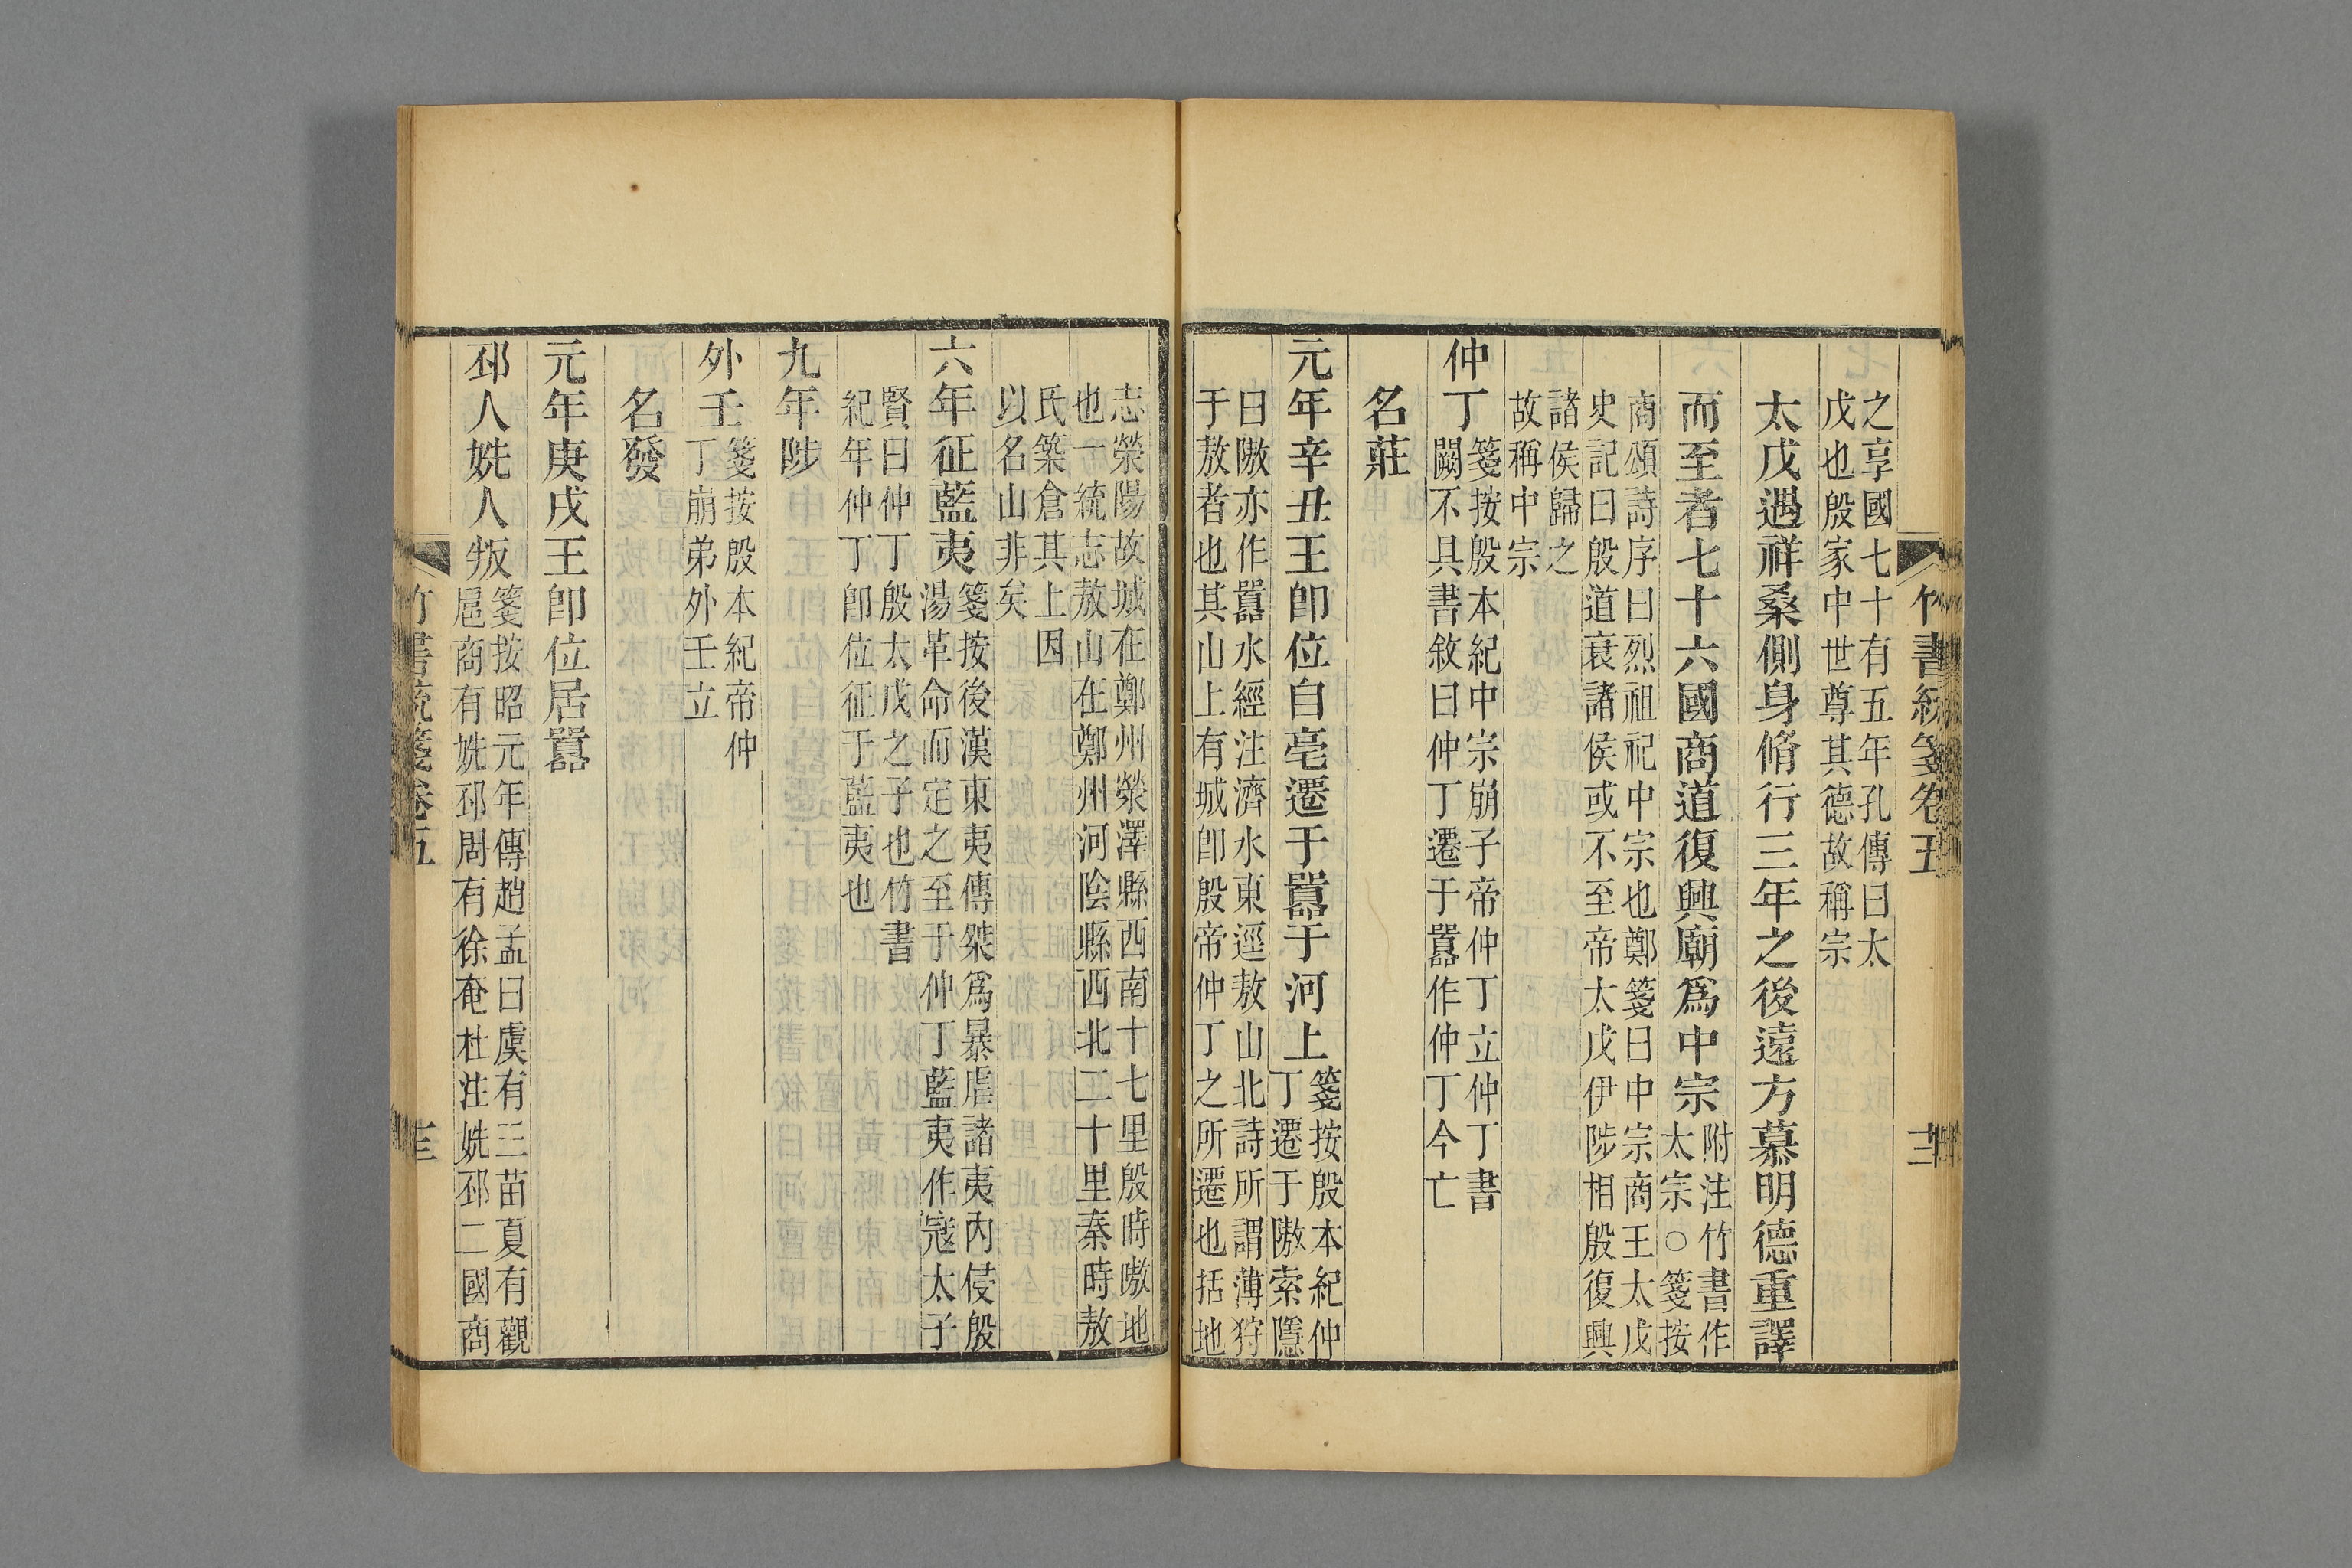 竹書統箋卷五
之享國七十有五年孔傳曰太
戊也殷家中世尊其德故稱宗
太戊遇祥桑側身脩行三年之後遠方慕明德重譯
而至者七十六國商道復興廟爲中宗
附注竹書作
太宗○箋按
商頌詩序曰烈祖祀中宗也鄭箋曰中宗商王太戊
史記曰殷道衰諸侯或不至帝太戊伊陟相殷復興
諸侯歸之
故稱中宗
仲丁
箋按殷本紀中宗崩子帝仲丁立仲丁書
闕不具書敘曰仲丁遷于囂作仲丁今亡
名莊
元年辛丑王卽位自亳遷于囂于河上
箋按殷本紀仲
丁遷于隞索隱
曰隞亦作囂水經注濟水東逕敖山北詩所謂薄狩
于敖者也其山上有城卽殷帝仲丁之所遷也括地
志滎陽故城在鄭州滎澤縣西南十七里殷時敖地
也一統志敖山在鄭州河陰縣西北二十里秦時敖
氏築倉其上因
以名山非矣
六年征藍夷
箋按後漢東夷傳桀爲暴虐諸夷內侵殷
湯革命而定之至于仲丁藍夷作寇太子
賢曰仲丁殷太戊之子也竹書
紀年仲丁卽位征于藍夷也
九年陟
外壬
箋按殷本紀帝仲
丁崩弟外壬立
名發
元年庚戌王卽位居囂
邳人姺人叛
箋按昭元年傳趙孟曰虞有三苗夏有觀
扈商有姺邳周有徐奄杜注姺邳二國商
竹書統箋卷五